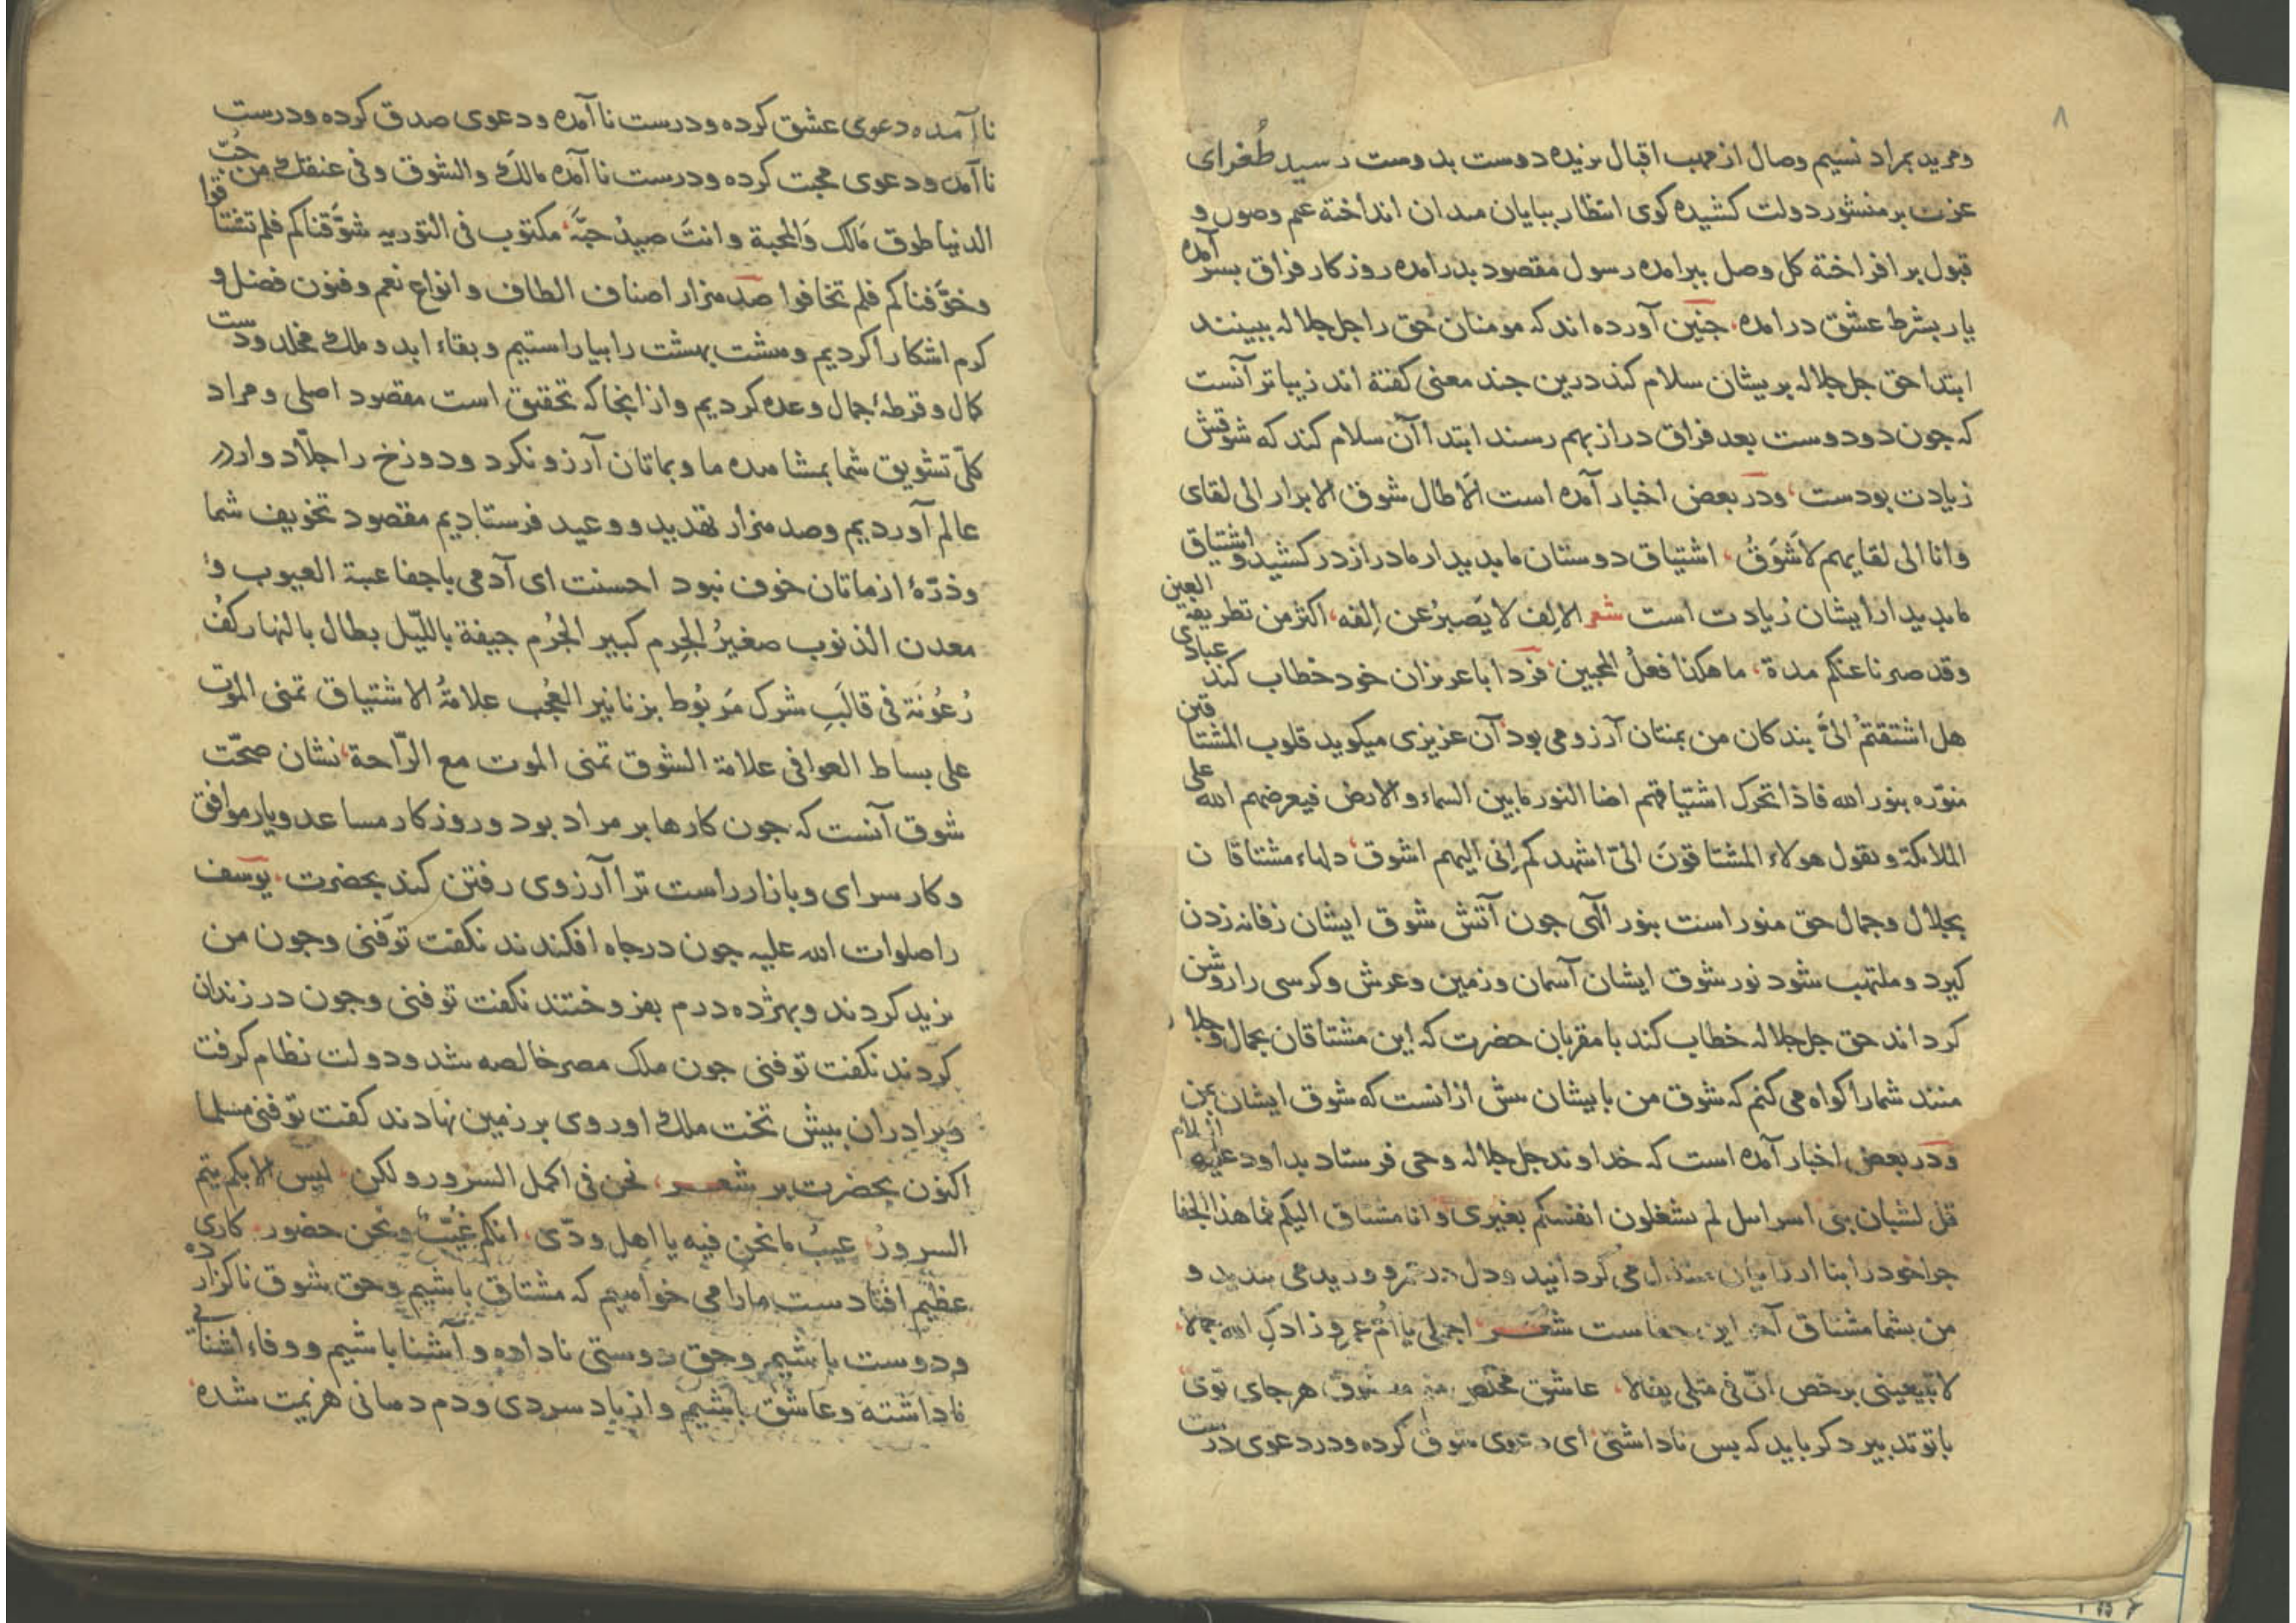 ۸
ومرید بمراد نسیم وصال از مهب اقبال بزیده دوست بدوست رسید طُغرای
عزت بر منشور دولت کشیده کوی انتظار ببایان میدان انداخته علم وصول و
قبول بر افراخته کل وصل ببرامده رسول مقصود بدرامده روزکار فراق بسر آمده
یار بشرط عشق درامده جنین آورده اند که مومنان حق را جل جلاله ببینند
ابتدا حق جل جلاله بریشان سلام کند درین جند معنی کفته اند زیباتر آنست
که جون دو دوست بعد فراق دراز بهم رسند ابتدا آن سلام کند که شوقش
زیادت بودست ودر بعض اخبار آمده است الَا طال شوق الابرار الی لقای
وانا الی لقایهم لاَشوَقُ اشتیاق دوستان ما بدیدار ما دراز در کشید و اشتیاق
ما بدیدار ایشان زیادت است شعر الاِلف لا یَصبرُ عن اِلفه اکثر من تطریفة العین
وقد صبرنا عنکم مدة ما هکذا فعلُ المحبین فردا با عزیزان خود خطاب کند عبادی
هل اشتقتمُ الیَّ بندکان من بمنتان آرزو می بود آن عزیزی میکوید قلوب المشتاقین
منوّره بنور الله فاذا تحرک اشتیاقهم اضا النور ما بین السماء والارض فیعرضهم الله علی
الملایکة ویقول هولاء المشتاقونَ الیّ اشهدکم اِنی الیهم اشوق دلهاء مشتاقان
بجلال وجمال حق منور است بنور الهی جون آتش شوق ایشان زفانه زدن
کیرد وملتهب شود نور شوق ایشان آسمان وزمین وعرش وکرسی را روشن
کرداند حق جل جلاله خطاب کند با مقربان حضرت که این مشتاقان بجمال وجلال
منند شما را کواه می کنم که شوق من بایشان بیش ازانست که شوق ایشان بمن
ودر بعض اخبار آمده است که خداوند جل جلاله وحی فرستاد بداود علیه السلام
قل لشبان بنی اسراییل لم تشغلون انفسکم بغیری وانا مشتاق الیکم فما هذا الجفا
جرا خود را می کردانید ودل در وزید می بندید و
من بشما مشتاق آخر این جفاست شعر اجملی یا اُمّ عمرٍو زادکِ الله جمالا
لا تبیعینی برخص انّ فی مثلی یغالا عاشق هر جای توی
با تو تدبیر دکر باید که بس ناداشتی ای دعوی شوق کرده ودر دعوی درست
ناآمده دعوی عشق کرده ودرست ناآمده ودعوی صدق کرده ودرست
ناآمده ودعوی محبت کرده ودرست ناآمده مالکَ والشوق وفی عنقک من حُبّ
الدنیا طوق مالک وَالمحبة وانتَ صیدُ حَبَّه مکتوب فی التوریه شوَّقناکم فلم تشتاقوا
وخوَّفناکم فلم تخافوا صد هزار اصناف الطاف وانواع نعم وفنون فضل و
کرم اشکارا کردیم وهشت بهشت را بیاراستیم وبقاء ابد وملک مخلد ودست
کمال وقرطهٔ جمال وعده کردیم وازانجا که تحقیق است مقصود اصلی ومراد
کلّی تشویق شما بمشاهده ما وبماتان آرزو نکرد ودوزخ را جلّادوار در
عالم آوردیم وصد هزار تهدید ووعید فرستادیم مقصود تخویف شما
وذرّهٔ ازماتان خوف نبود احسنت ای آدمی باجفا عیبة العیوب و
معدن الذنوب صغیرُ الجِرم کبیر الجُرم جیفة باللّیل بطال بالنهار کفُ
رُعُونَة فی قالَبِ شرک مَربُوط بزنانیر العُجب علامةُ الاشتیاق تمنی الموت
علی بساط العوافی علامة الشوق تمنی الموت مع الرّاحة نشان صحّت
شوق آنست که جون کارها بر مراد بود وروزکار مساعد ویار موافق
وکار سرای وبازار راست ترا آرزوی رفتن کند بحضرت یوسف
را صلوات الله علیه جون درجاه افکندند نکفت توفّنی وجون من
یزید کردند وبهژده درم بفروختند نکفت توفنی وجون در زندان
کردند نکفت توفنی جون ملک مصر خالصه شد ودولت نظام کرفت
وبرادران بیش تخت ملک او روی بر زمین نهادند کفت توفنی مسلما
اکنون بحضرت بر شعر نحن فی اکمل السرور ولکن لیس الا بکم یتم
السرورُ عیبُ ما نحن فیه یا اهل ودّی انکم غُیَّبٌ ونحن حضور کاری
عظیم افتادست مارا می خواهیم که مشتاق باشیم وحق شوق ناکزارده
ودوست باشیم وحق دوستی ناداده وآشنا باشیم ووفاء اشنائی
ناداشته وعاشق باشیم واز باد سردی ودم دمانی هزیمت شده